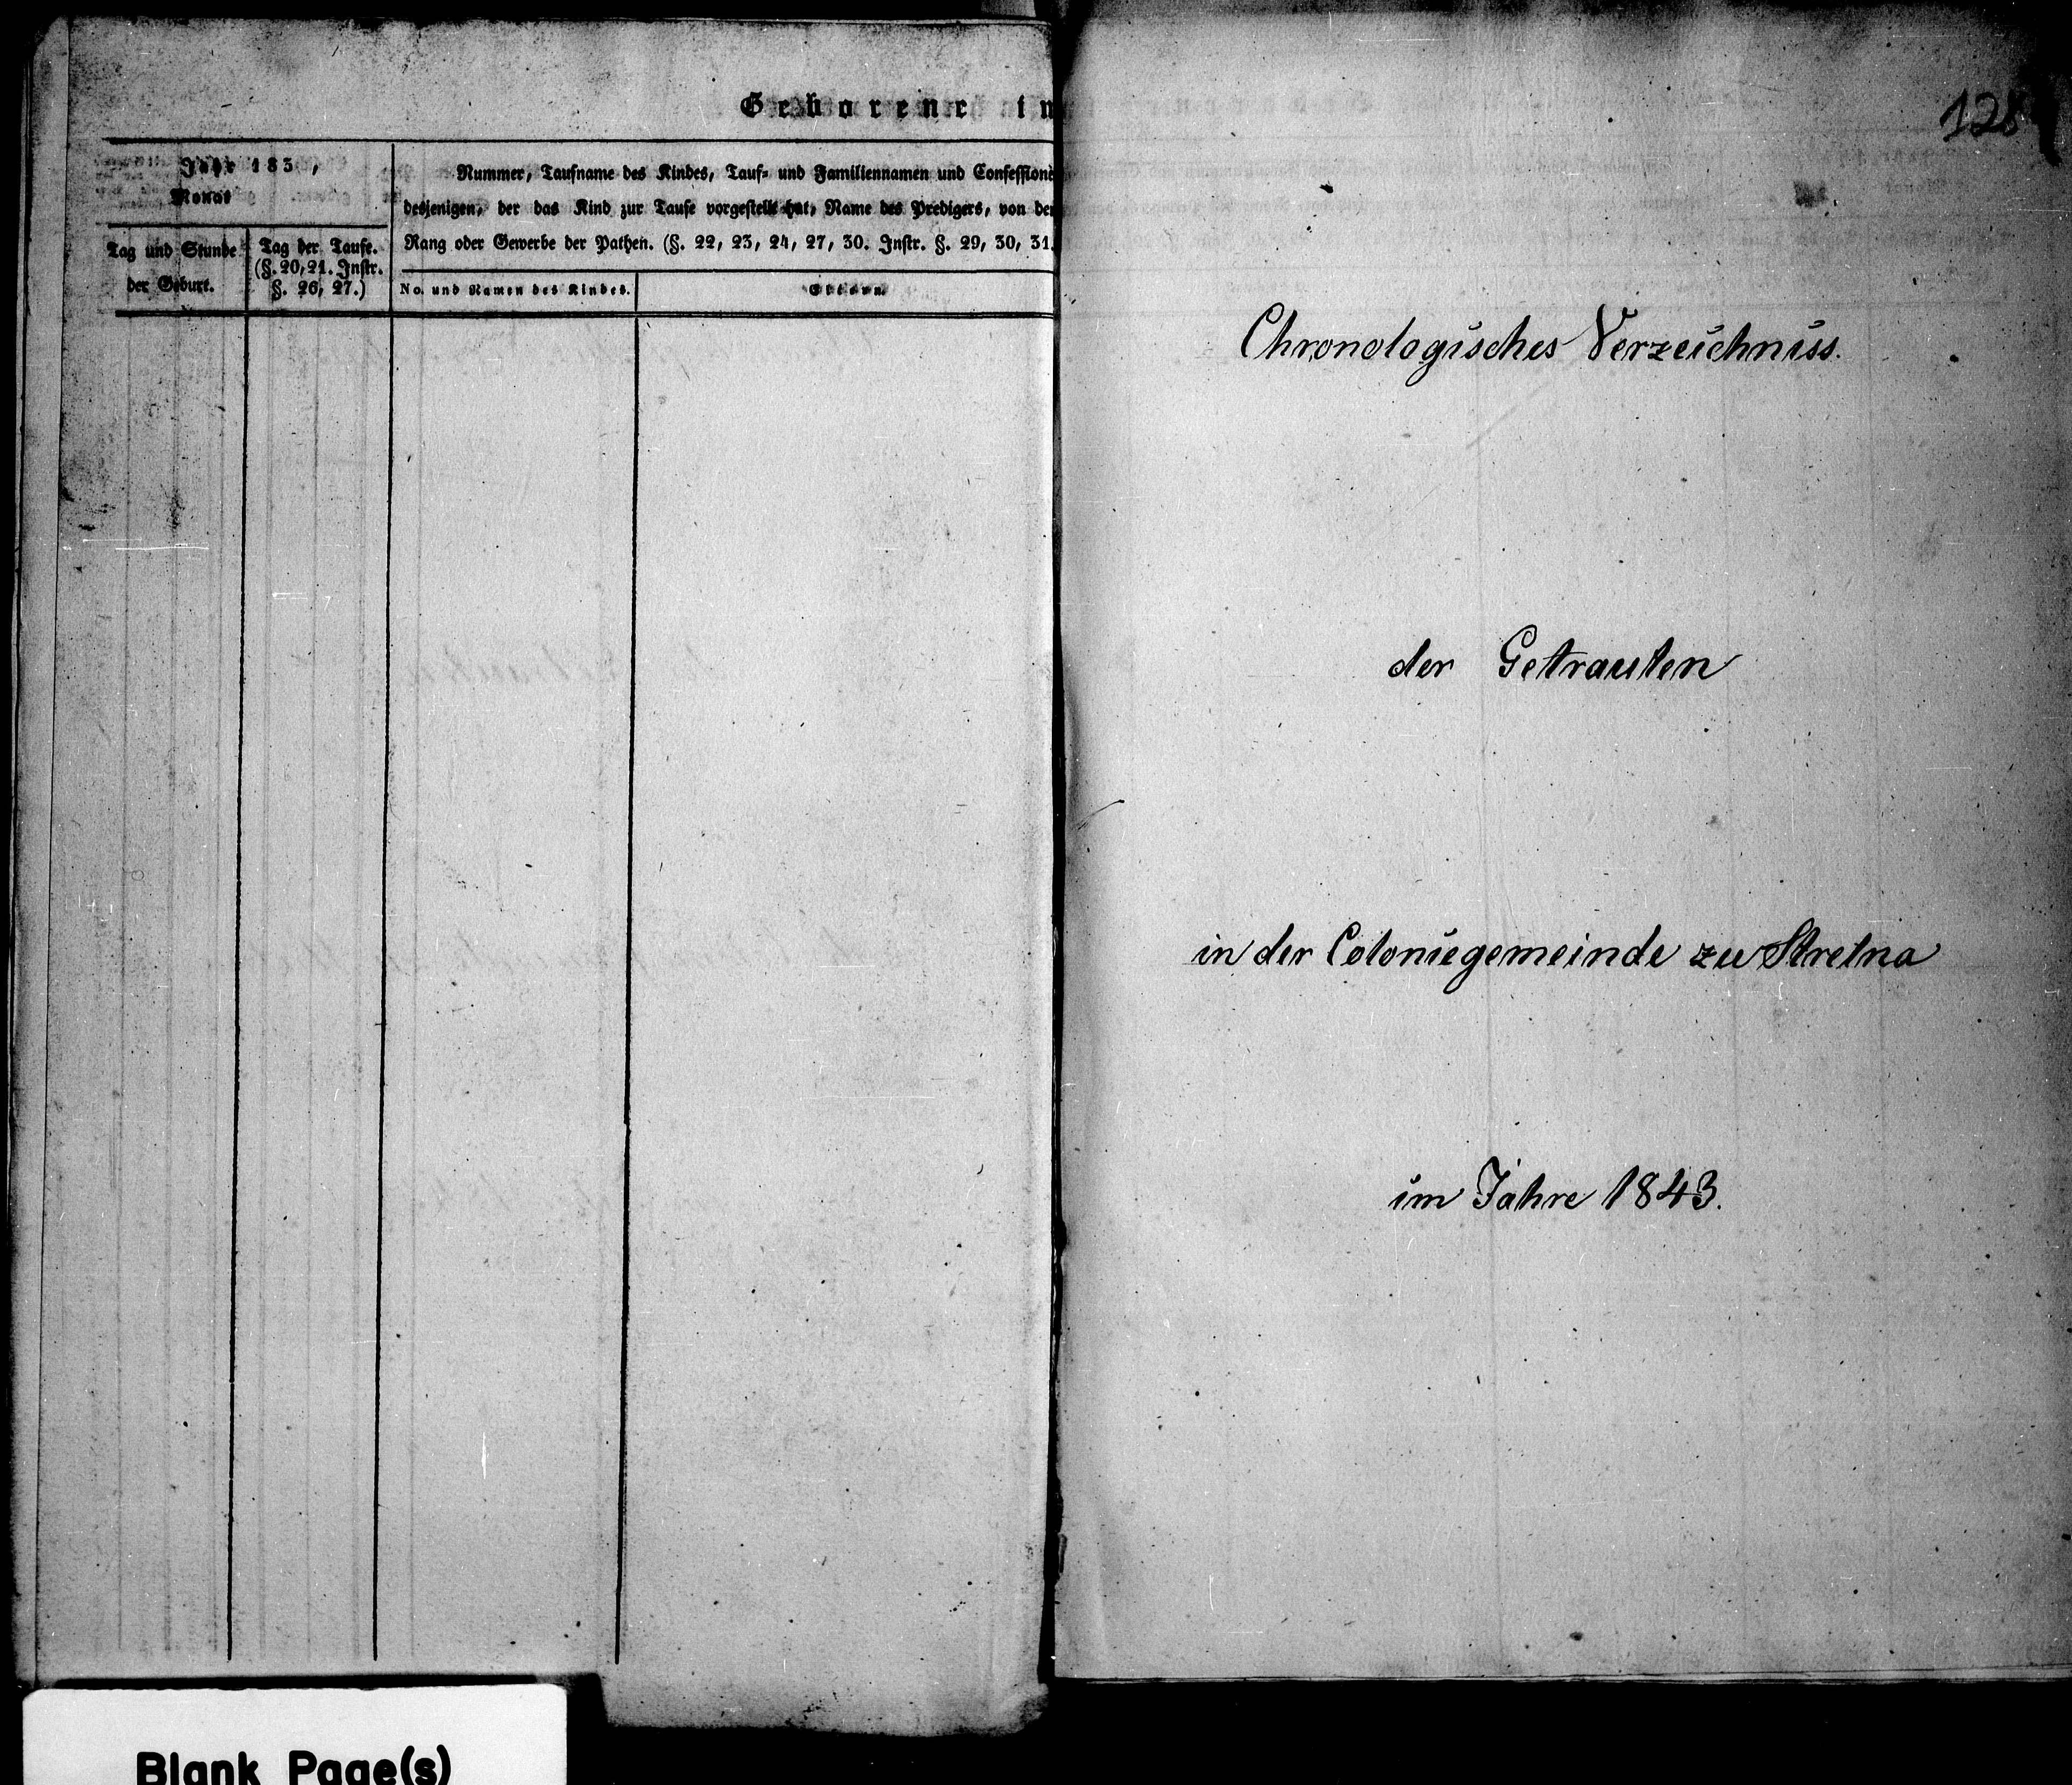 Geborene in
Jahr 183 ,
Monat
Tag und Stunde
der Geburt.
Tag der Taufe.
(§. 20, 21. Instr.
§. 26, 27.)
Nummer, Taufname des Kindes, Tauf- und Familiennamen und Confession
desjenigen, der das Kind zur Taufe vorgestellt hat, Name des Predigers, von der
Rang oder Gewerbe der Pathen. (§. 22, 23, 24, 27, 30. Instr. §. 29, 30, 31.
No. und Namen des Kindes.
Eltern.
128
Chronologisches Verzeichniss.
der Getrauten
in der Coloniegemeinde zu Strelna
im Jahre 1843.
Blank Page(s)